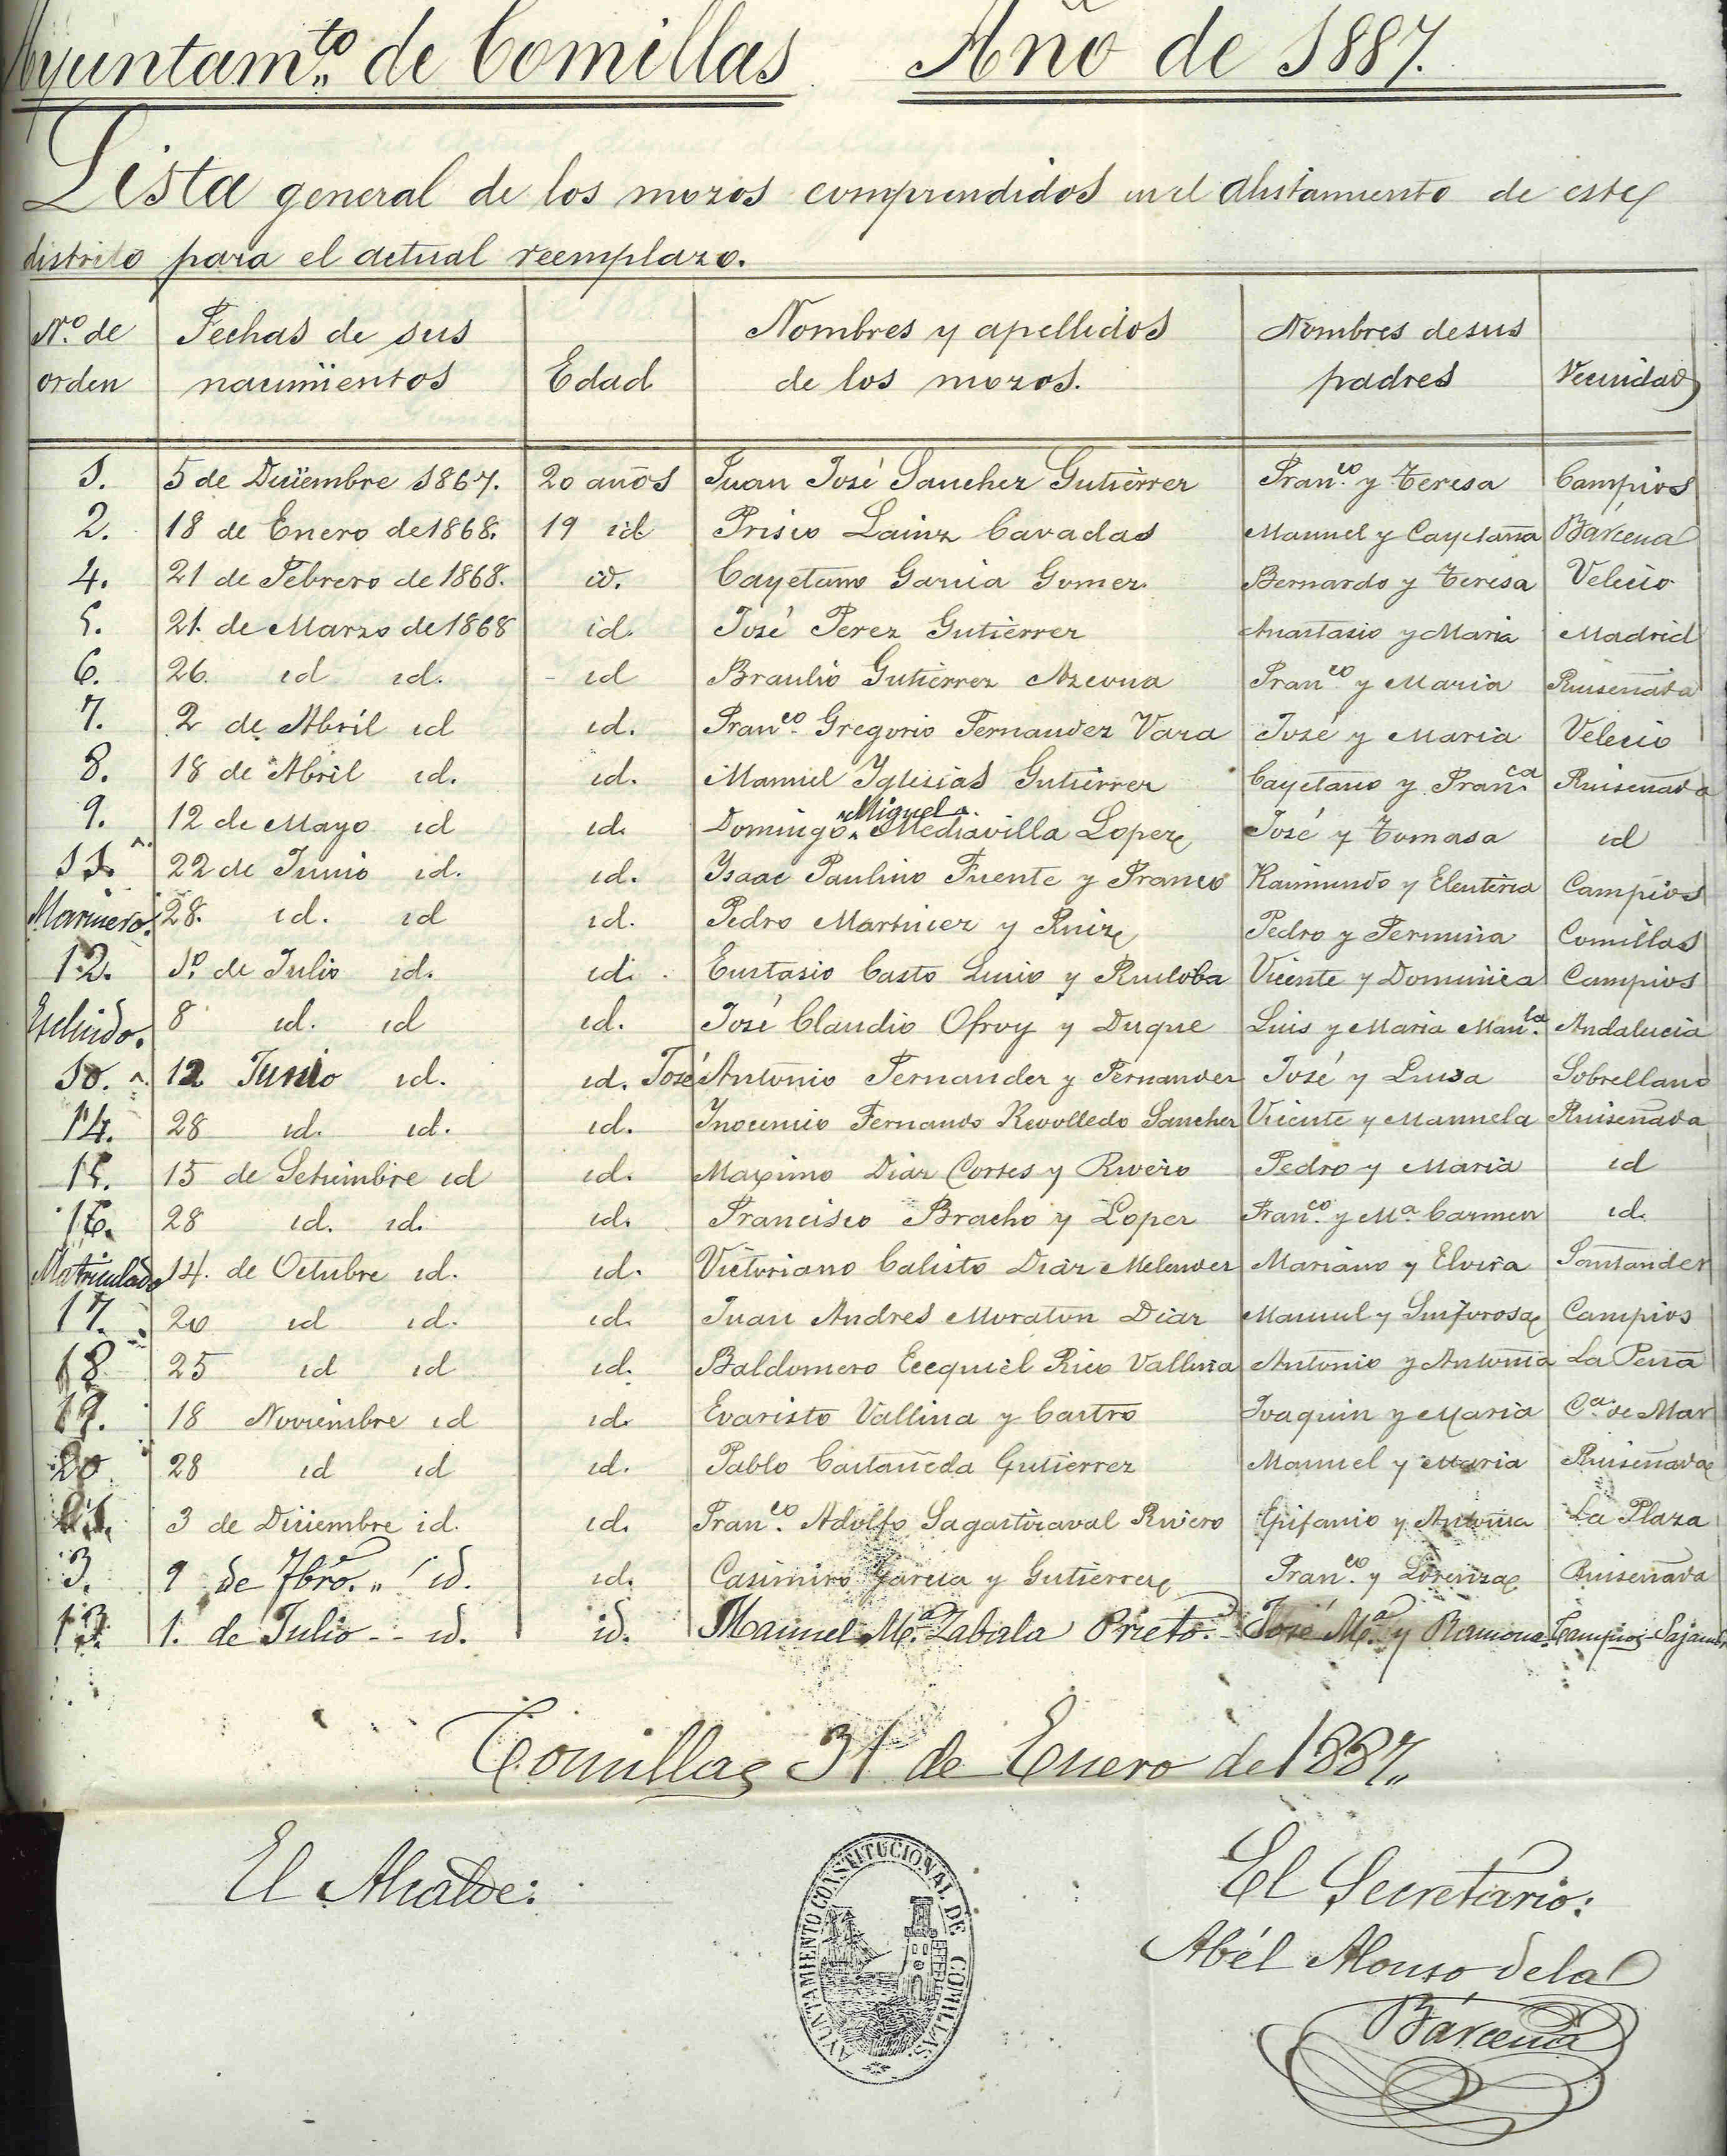 Ayuntam.to de Comillas Año de 1887.
Lista general de los mozos comprendidos en el alistamiento de este
distrito para el actual reemplazo.
N.o de orden Fechas de sus nacimientos Edad Nombres y apellidos de los mozos. Nombres de sus padres Vecindad
1. 5 de Diciembre 1867. 20 años Juan José Sanchez Gutiérrez Fran.co y Teresa Campios
2. 18 de Enero de 1868. 19 id Prisco Lainz Cavadas Manuel y Cayetana Bárcena
4. 21 de Febrero de 1868. id. Cayetano Garcia Gomez Bernardo y Teresa Velecio
5. 21. de Marzo de 1868 id. José Perez Gutiérrez Anastasio y Maria Madrid
6. 26. id id. id Braulio Gutiérrez Azcona Fran.co y Maria Ruiseñada
7. 2 de Abril id id. Fran.co Gregorio Fernandez Vara José y Maria Velecio
8. 18 de Abril id. id. Manuel Yglesias Gutiérrez Cayetano y Fran.ca Ruiseñada
9. 12 de Mayo id id. Domingo Miguel Mediavilla Lopez José y Tomasa id
11. 22 de Junio id. id. Ysaac Paulino Fuente y Franco Raimundo y Eleuteria Campios
Marinero. 28. id. id id. Pedro Martinez y Ruiz Pedro y Fermina Comillas
12. 1.o de Julio id. id. Eustasio Casto Lucio y Ruiloba Vicente y Dominica Campios
Escluido. 8 id. id id. José Claudio Ofroy y Duque Luis y Maria Man.la Andalucia
10. 12 Junio id. id. José Antonio Fernandez y Fernandez José y Luisa Sobrellano
14. 28 id. id. id. Ynocencio Fernando Revolledo Sanchez Vicente y Manuela Ruiseñada
15. 15 de Setiembre id id. Maximo Diaz Cortes y Rivero Pedro y Maria id
16. 28 id. id. id. Francisco Bracho y Lopez Fran.co y M.a Carmen id.
Matriculado 14. de Octubre id. id. Victoriano Calisto Diaz Melendez Mariano y Elvira Santander
17. 20 id id. id. Juan Andres Moraton Diaz Manuel y Sinforosa Campios
18 25 id id id. Baldomero Ecequiel Rico Vallina Antonio y Antonia La Peña
19. 18 Noviembre id id. Evaristo Vallina y Castro Joaquin y Maria C.a de Mar
20 28 id id id. Pablo Castañeda Gutierrez Manuel y Maria Ruiseñada
21. 3 de Diciembre id. id. Fran.co Adolfo Sagastizaval Rivero Epifanio y Antonia La Plaza
3. 9 de Fbro. " id. id. Casimiro Garcia y Gutierrez Fran.co y Lorenza Ruiseñada
13. 1. de Julio -- id. id. Manuel M.a Zabala Prieto. José M.a y Ramona. Campios
Comillas 31 de Enero de 1887.
El Alcalde:
AYUNTAMIENTO CONSTITUCIONAL DE COMILLAS.
El Secretario:
Abél Alonso de la
Bárcena